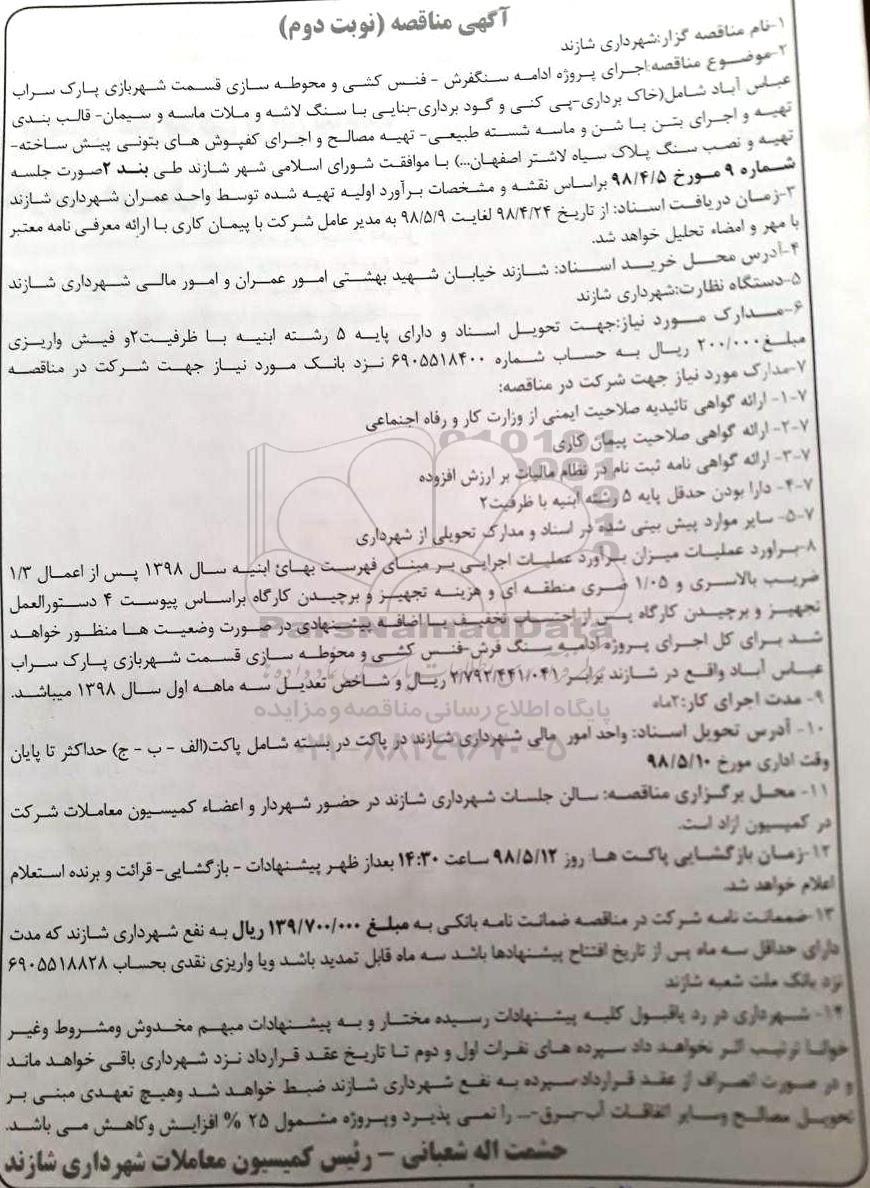 آگهی مناقصه (نوبت دوم)
۱-نام مناقصه گزار:شهرداری شازند
۲-موضوع مناقصه:اجرای پروژه ادامه سنگفرش - فنس کشی و محوطه سازی قسمت شهربازی پارک سراب
عباس آباد شامل(خاک برداری-پی کنی و گود برداری-بنایی با سنگ لاشه و ملات ماسه و سیمان- قالب بندی
تهیه و اجرای بتن با شن و ماسه شسته طبیعی- تهیه مصالح و اجرای کفپوش های بتونی پیش ساخته-
تهیه و نصب سنگ پلاک سیاه لاشتر اصفهان...) با موافقت شورای اسلامی شهر شازند طی بند ۲صورت جلسه
شماره ۹ مورخ ۹۸/۴/۵ براساس نقشه و مشخصات برآورد اولیه تهیه شده توسط واحد عمران شهرداری شازند
۳-زمان دریافت اسناد: از تاریخ ۹۸/۴/۲۴ لغایت ۹۸/۵/۹ به مدیر عامل شرکت با پیمان کاری با ارائه معرفی نامه معتبر
با مهر و امضاء تحلیل خواهد شد.
۴-آدرس محل خرید اسناد: شازند خیابان شهید بهشتی امور عمران و امور مالی شهرداری شازند
۵-دستگاه نظارت:شهرداری شازند
۶-مدارک مورد نیاز:جهت تحویل اسناد و دارای پایه ۵ رشته ابنیه با ظرفیت۲و فیش واریزی
مبلغ۲۰۰/۰۰۰ ریال به حساب شماره ۶۹۰۵۵۱۸۴۰۰ نزد بانک مورد نیاز جهت شرکت در مناقصه
۷-مدارک مورد نیاز جهت شرکت در مناقصه:
۷-۱- ارائه گواهی تائیدیه صلاحیت ایمنی از وزارت کار و رفاه اجتماعی
۷-۲- ارائه گواهی صلاحیت پیمان کاری
۷-۳- ارائه گواهی نامه ثبت نام در نظام مالیات بر ارزش افزوده
۷-۴- دارا بودن حدقل پایه ۵ رشته ابنیه با ظرفیت۲
۷-۵- سایر موارد پیش بینی شده در اسناد و مدارک تحویلی از شهرداری
۸-براورد عملیات میزان برآورد عملیات اجرایی بر مبنای فهرست بهائ ابنیه سال ۱۳۹۸ پس از اعمال ۱/۳
ضریب بالاسری و ۱/۰۵ ضری منطقه ای و هزینه تجهیز و برچیدن کارگاه براساس پیوست ۴ دستورالعمل
تجهیز و برچیدن کارگاه پس از احتساب تخفیف یا اضافه پیشنهادی در صورت وضعیت ها منظور خواهد
شد برای کل اجرای پروژه ادامه سنگ فرش-فنس کشی و محوطه سازی قسمت شهربازی پارک سراب
عباس آباد واقع در شازند برابر ۲/۷۹۲/۴۴۱/۰۴۱ ریال و شاخص تعدیل سه ماهه اول سال ۱۳۹۸ میباشد.
۹- مدت اجرای کار:۲ماه
۱۰- آدرس تحویل اسناد: واحد امور مالی شهرداری شازند در پاکت در بسته شامل پاکت(الف - ب - ج) حداکثر تا پایان
وقت اداری مورخ ۹۸/۵/۱۰
۱۱- محل برگزاری مناقصه: سالن جلسات شهرداری شازند در حضور شهردار و اعضاء کمیسیون معاملات شرکت
در کمیسیون ازاد است.
۱۲-زمان بازگشایی پاکت ها: روز ۹۸/۵/۱۲ ساعت ۱۴:۳۰ بعداز ظهر پیشنهادات - بازگشایی- قرائت و برنده استعلام
اعلام خواهد شد.
۱۳-ضمانت نامه شرکت در مناقصه ضمانت نامه بانکی به مبلغ ۱۳۹/۷۰۰/۰۰۰ ریال به نفع شهرداری شازند که مدت
دارای حداقل سه ماه پس از تاریخ افتتاح پیشنهادها باشد سه ماه قابل تمدید باشد ویا واریزی نقدی بحساب ۶۹۰۵۵۱۸۸۲۸
نزد بانک ملت شعبه شازند
۱۴- شهرداری در رد یاقبول کلیه پیشنهادات رسیده مختار و به پیشنهادات مبهم مخدوش ومشروط وغیر
خوانا ترتیب اثر نخواهد داد سپرده های نفرات اول و دوم تا تاریخ عقد قرارداد نزد شهرداری باقی خواهد ماند
و در صورت انصراف از عقد قرارداد سپرده به نفع شهرداری شازند ضبط خواهد شد وهیچ تعهدی مبنی بر
تحویل مصالح وسایر اتفاقات آب-برق-... را نمی پذیرد وپروژه مشمول ۲۵ % افزایش وکاهش می باشد.
حشمت اله شعبانی - رئیس کمیسیون معاملات شهرداری شازند
ParsNamadData
پایگاه اطلاع رسانی مناقصه و مزایده